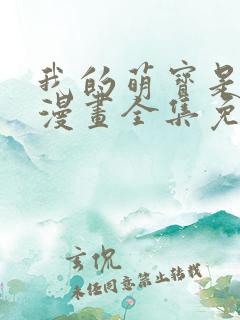 我的萌寶是
漫畫全集免
玄侃
未经同意禁止转载